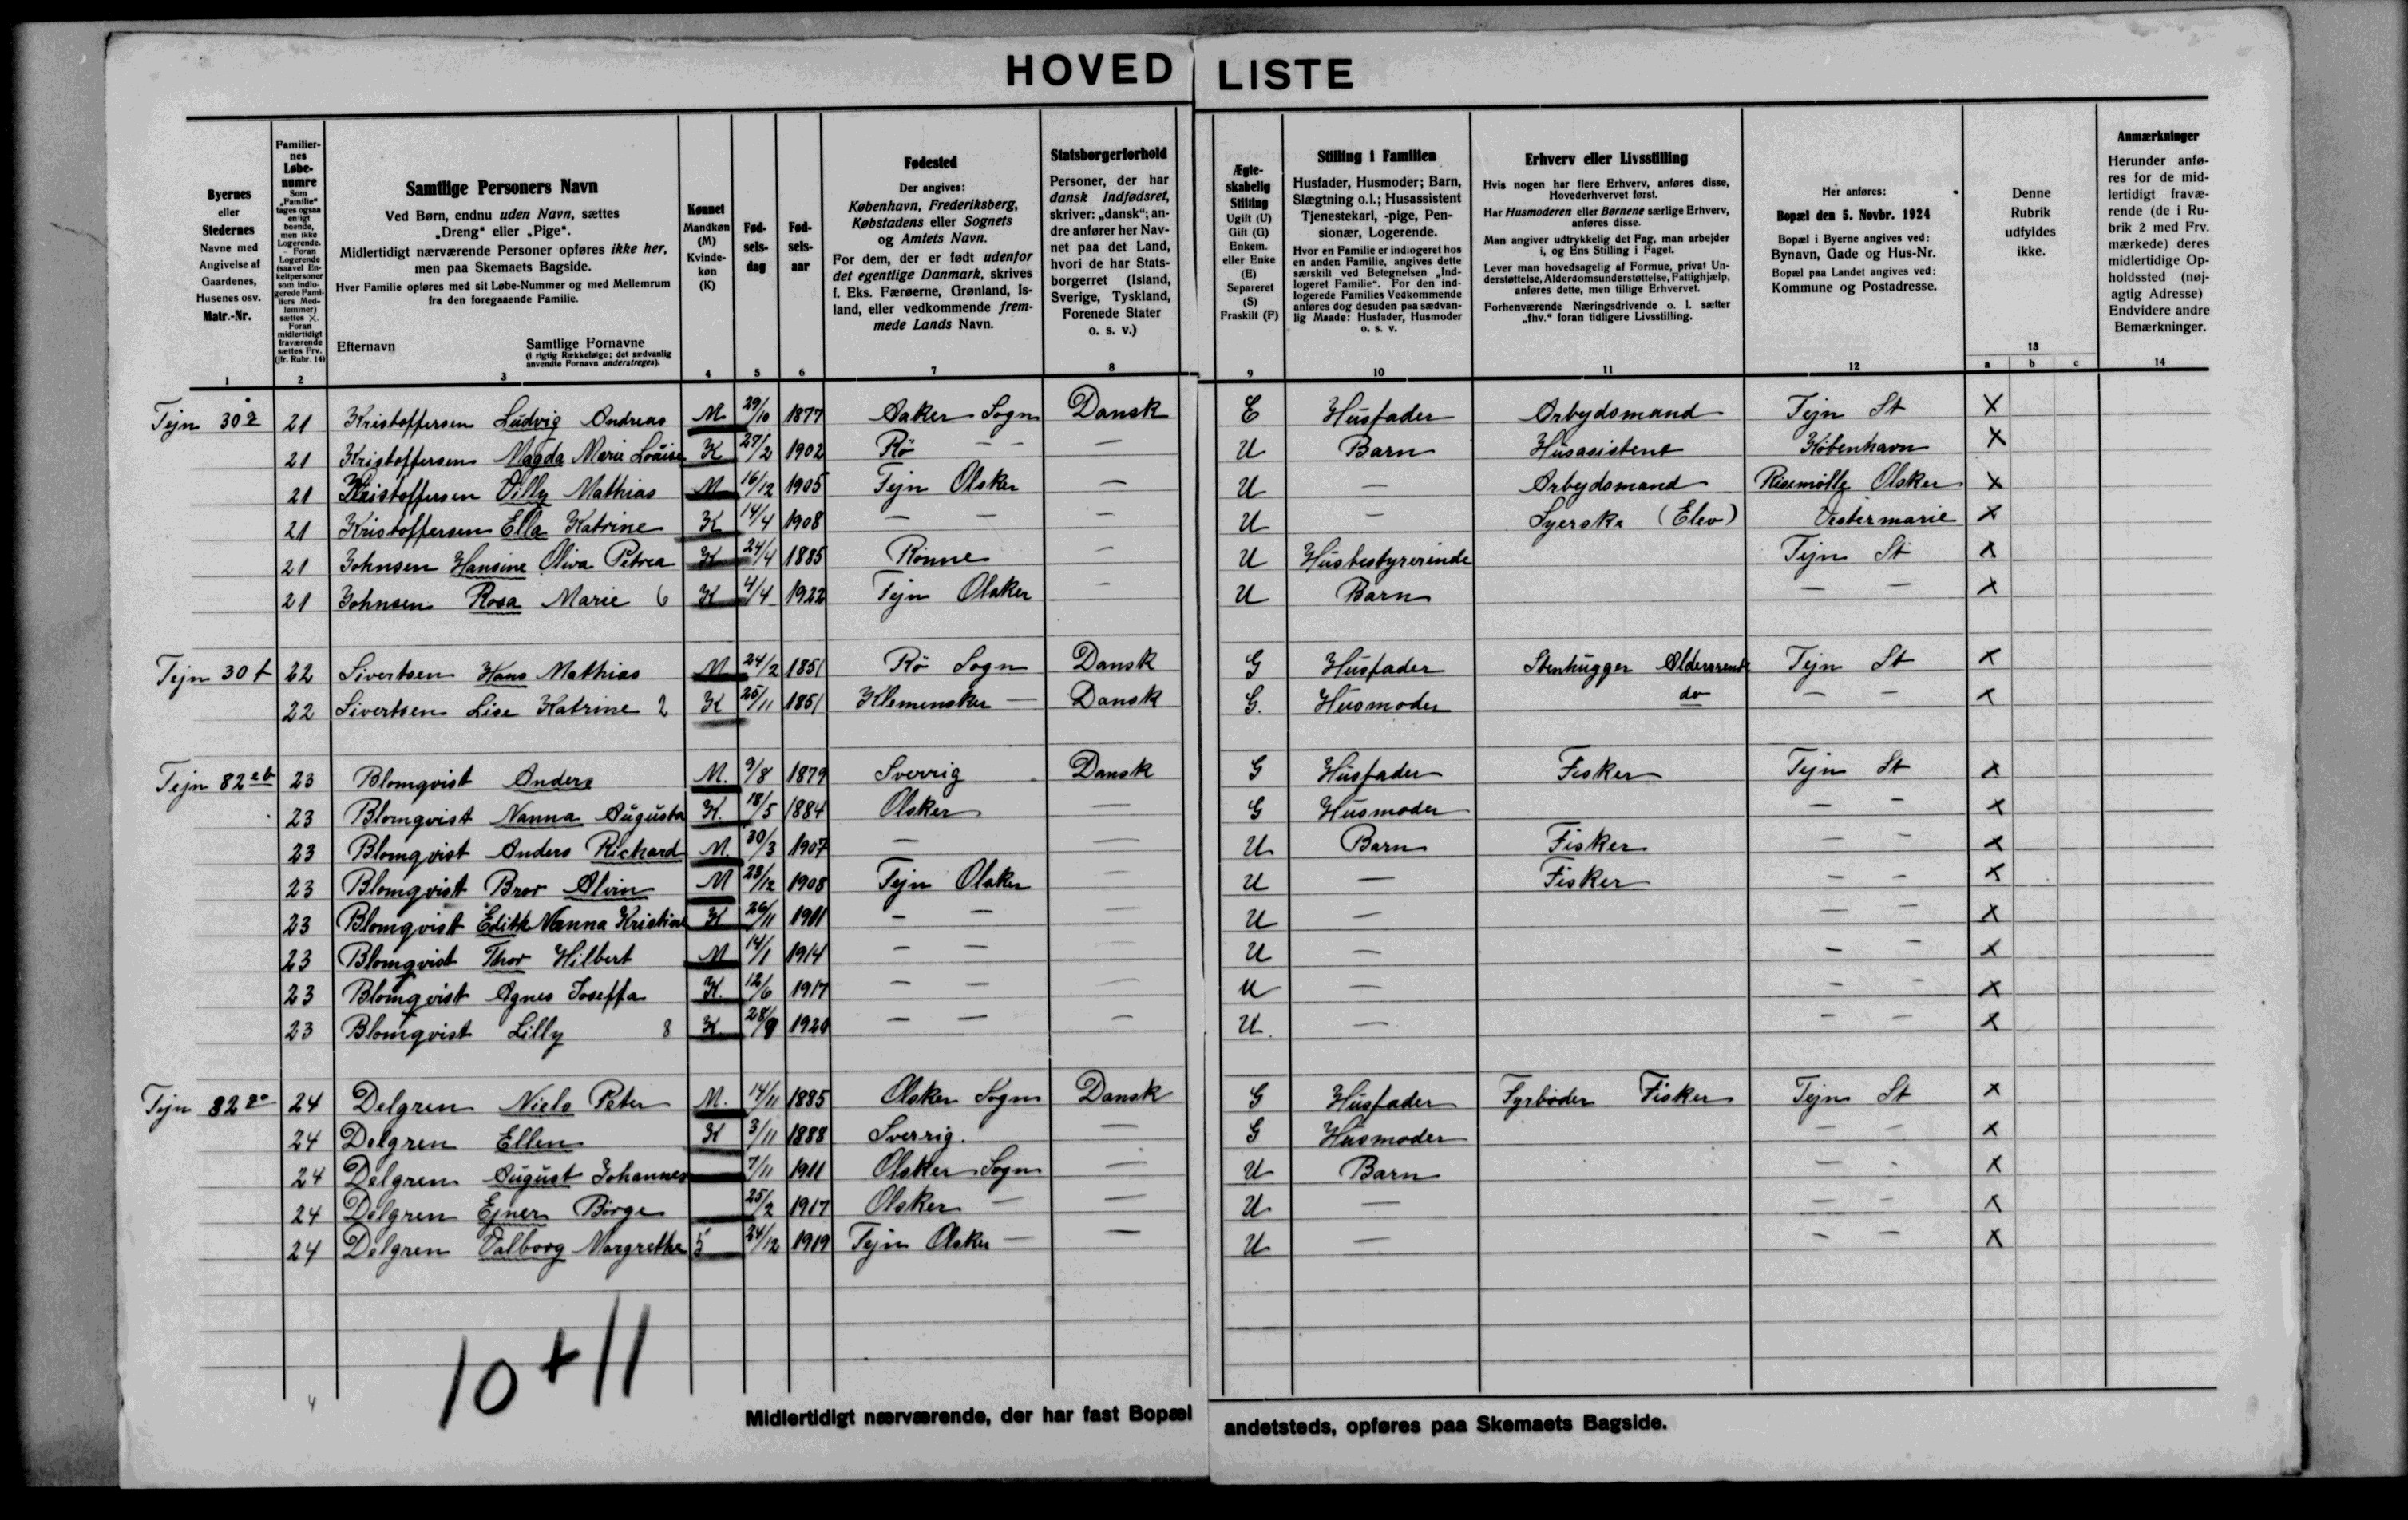 HOVED LISTE
Byernes eller Stedernes Navne med Angivelse af Gaardenes, Husenes osv. Matr.-Nr.
Familiernes Løbenumre Som „Familie“ tages ogsaa enligt boende, men ikke Logerende. Foran Logerende (saavel Enkeltpersoner som indlogerede Familiers Medlemmer) sættes X. Foran midlertidigt fraværende sættes Frv. (jfr. Rubr. 14)
Samtlige Personers Navn
Ved Børn, endnu uden Navn, sættes „Dreng“ eller „Pige“.
Midlertidigt nærværende Personer opføres ikke her, men paa Skemaets Bagside.
Hver Familie opføres med sit Løbe-Nummer og med Mellemrum fra den foregaaende Familie.
Efternavn Samtlige Fornavne (i rigtig Rækkefølge; det sædvanlig anvendte Fornavn understreges).
Kønnet Mandkøn (M) Kvindekøn (K)
Fødselsdag
Fødselsaar
Fødested
Der angives: København, Frederiksberg, Købstadens eller Sognets og Amtets Navn.
For dem, der er født udenfor det egentlige Danmark, skrives f. Eks. Færøerne, Grønland, Island, eller vedkommende fremmede Lands Navn.
Statsborgerforhold
Personer, der har dansk Indfødsret, skriver: „dansk“; andre anfører her Navnet paa det Land, hvori de har Statsborgerret (Island, Sverige, Tyskland, Forenede Stater o. s. v.)
Ægteskabelig Stilling Ugift (U) Gift (G) Enkem. eller Enke (E) Separeret (S) Fraskilt (F)
Stilling i Familien
Husfader, Husmoder; Barn, Slægtning o.l.; Husassistent Tjenestekarl, -pige, Pensionær, Logerende.
Hvor en Familie er indlogeret hos en anden Familie, angives dette særskilt ved Betegnelsen „Indlogeret Familie“. For den indlogerede Families Vedkommende anføres dog desuden paa sædvanlig Maade: Husfader, Husmoder o. s. v.
Erhverv eller Livsstilling
Hvis nogen har flere Erhverv, anføres disse, Hovederhvervet først.
Har Husmoderen eller Børnene særlige Erhverv, anføres disse.
Man angiver udtrykkelig det Fag, man arbejder i, og Ens Stilling i Faget.
Lever man hovedsagelig af Formue, privat Understøttelse, Alderdomsunderstøttelse, Fattighjælp, anføres dette, men tillige Erhvervet.
Forhenværende Næringsdrivende o. l. sætter „fhv.“ foran tidligere Livsstilling.
Her anføres: Bopæl den 5. Novbr. 1924
Bopæl i Byerne angives ved: Bynavn, Gade og Hus-Nr.
Bopæl paa Landet angives ved: Kommune og Postadresse.
Denne Rubrik udfyldes ikke.
Anmærkninger
Herunder anføres for de midlertidigt fraværende (de i Rubrik 2 med Frv. mærkede) deres midlertidige Opholdssted (nøjagtig Adresse) Endvidere andre Bemærkninger.
1 2 3 4 5 6 7 8 9 10 11 12 13 a b c 14
Tejn 30 21 Kristoffersen Ludvig Andreas M 29/10 1877 Aaker Sogn Dansk E Husfader Arbejdsmand Tejn St X
21 Kristoffersen Magda Marie Louise K 27/2 1902 Rö — — U Barn Husasistent København X
21 Kristoffersen Villy Mathias M 16/12 1905 Tejn Olsker — U — Arbejdsmand Risemølle Olsker X
21 Kristoffersen Ella Katrine K 14/4 1908 — — — U — Syerske (Elev) Vestermarie X
21 Johnsen Hansine Oliva Petrea K 24/4 1885 Rönne — U Husbestyrerinde Tejn St X
21 Johnsen Rosa Marie 6 K 4/4 1922 Tejn Olsker — U Barn — — X
Tejn 30 22 Sivertsen Hans Mathias M 24/2 1851 Rö Sogn Dansk G Husfader Stenhugger Aldersrente Tejn St X
22 Sivertsen Lise Katrine 2 K 25/11 1851 Klemensker — Dansk G. Husmoder do — — X
Tejn 82 ab 23 Blomqvist Anders M. 9/8 1879 Sverrig Dansk G Husfader Fisker Tejn St X
23 Blomqvist Nanna Augusta K. 18/5 1884 Olsker — G Husmoder — — X
23 Blomqvist Anders Richard M. 30/3 1907 — — U Barn Fisker — — X
23 Blomqvist Bror Alvin M 23/12 1908 Tejn Olsker — U — Fisker — — X
23 Blomqvist Edith Nanna Kristine K 26/11 1911 — — — U — — — X
23 Blomqvist Thor Hilbert M 14/1 1914 — — — U — — — X
23 Blomqvist Agnes Joseffa K. 12/6 1917 — — — U — — — X
23 Blomqvist Lilly 8 K 28/9 1920 — — — U. — — — X
Tejn 82 24 Delgren Niels Peter M. 14/11 1885 Olsker Sogn Dansk G Husfader Fyrbøder Fisker Tejn St X
24 Delgren Ellen K 3/11 1888 Sverrig. — G Husmoder — — X
24 Delgren August Johannes 7/11 1911 Olsker Sogn — U Barn — - X
24 Delgren Ejner Börge 25/2 1917 Olsker — — U — — — X
24 Delgren Valborg Margrethe 5 24/12 1919 Tejn Olsker — — U — — — X
10 + 11
4
Midlertidigt nærværende, der har fast Bopæl andetsteds, opføres paa Skemaets Bagside.